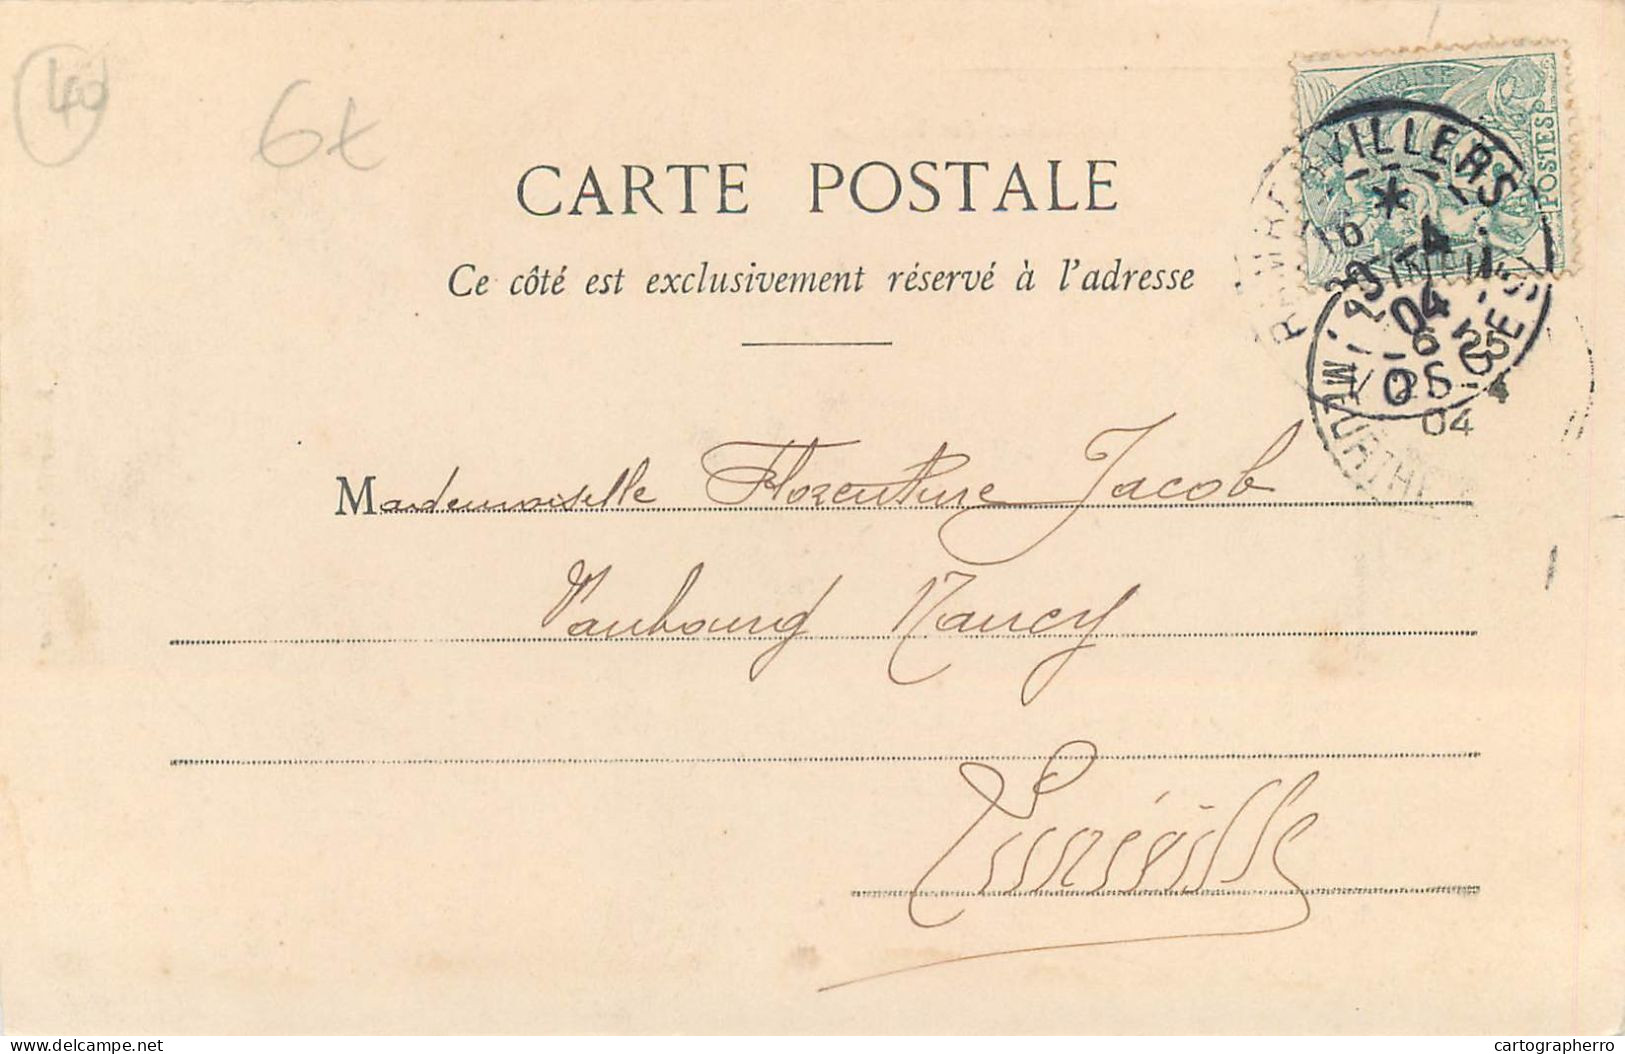 40
6t
CARTE POSTALE
Ce côté est exclusivement réservé à l'adresse
POSTES
RAMBERVILLERS
VOSGES
6
04
6 25
25 4
04
MEURTHE
Mademoiselle Florentine Jacob
Faubourg Nancy
Lunéville
Delcampe.net
cartographerro